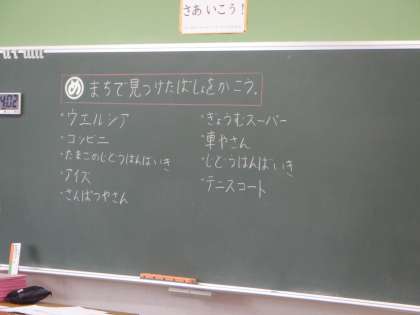 さあ いこう!
4:02
め まちで見つけたばしょをかこう。
・ウエルシア
・コンビニ
・たまごのじどうはんばいき
・アイズ
・さんぱつやさん
・ぎょうむスーパー
・車やさん
・じどうはんばいき
・テニスコート